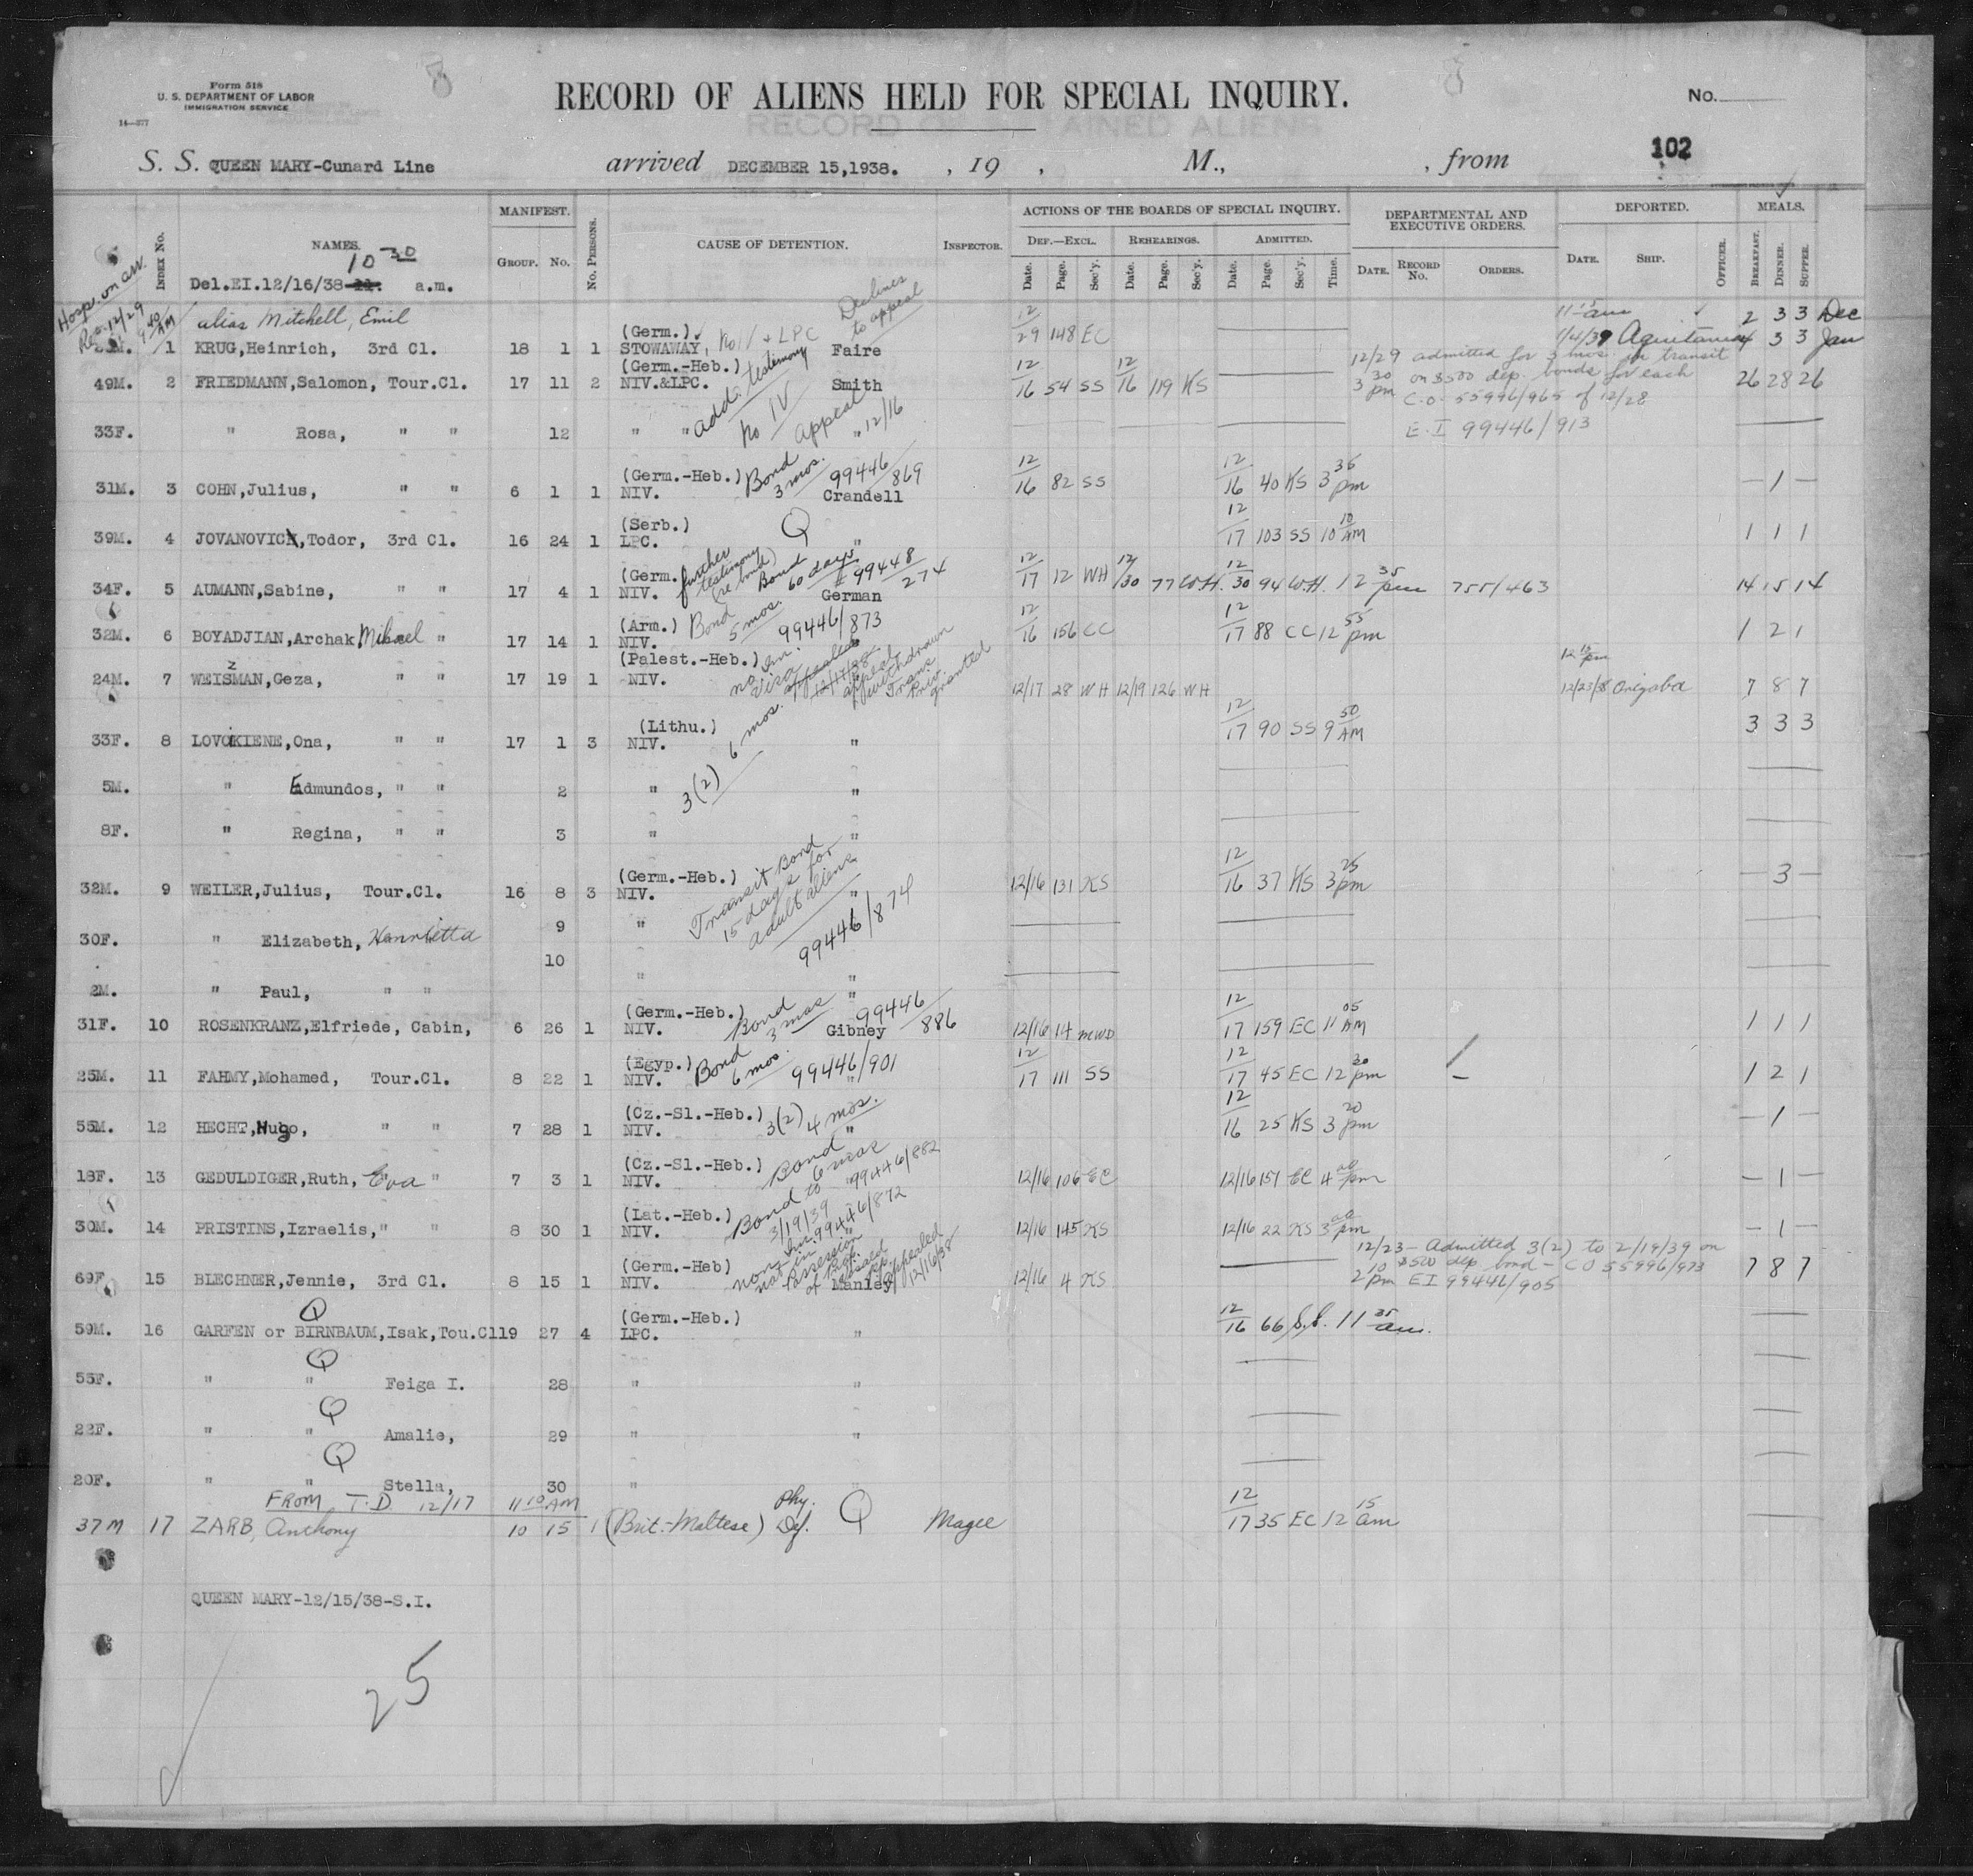 Form 518
U. S. DEPARTMENT OF LABOR
IMMIGRATION SERVICE
14—377
RECORD OF ALIENS HELD FOR SPECIAL INQUIRY.
No.
102
S. S. QUEEN MARY-Cunard Line arrived DECEMBER 15,1938. , 19 , M., , from
INDEX No. NAMES. MANIFEST. GROUP. No. No. PERSONS. CAUSE OF DETENTION. INSPECTOR. ACTIONS OF THE BOARDS OF SPECIAL INQUIRY. DEPARTMENTAL AND EXECUTIVE ORDERS. DEPORTED. MEALS.
DEF.—EXCL. REHEARINGS. ADMITTED.
Date. Page. Sec'y. Date. Page. Sec'y. Date. Page. Sec'y. Time. DATE. RECORD No. ORDERS. DATE. SHIP. OFFICER. BREAKFAST. DINNER. SUPPER.
10 30
Del.EI.12/16/38- a.m.
Hosp. on arr.
Rec. 12/29 9 40 AM
alias Mitchell, Emil (Germ.) No IV & LPC Declines to appeal 12/29 148 EC 11 15 am 2 3 3 Dec
1 KRUG,Heinrich, 3rd Cl. 18 1 1 STOWAWAY, Faire 1/4/39 Aquitania 4 3 3 Jan
49M. 2 FRIEDMANN,Salomon, Tour.Cl. 17 11 2 (Germ.-Heb.) NIV.&LPC. add. testimony Smith 12/16 54 SS 12/16 119 KS 12/29 admitted for 3 mos. in transit 3 30 pm on $500 dep. bonds for each C.O. 55996/965 of 12/28 26 28 26
33F. " Rosa, " " 12 " " No IV appeal 12/16 " E.I 99446/913
31M. 3 COHN,Julius, " " 6 1 1 (Germ.-Heb.) NIV. Bond 3 mos. 99446/869 Crandell 12/16 82 SS 12/16 40 KS 3 36 pm — 1 —
39M. 4 JOVANOVICH,Todor, 3rd Cl. 16 24 1 (Serb.) LPC. Q " 12/17 103 SS 10 10 AM 1 1 1
34F. 5 AUMANN,Sabine, " " 17 4 1 (Germ. NIV. further testimony (re bond) Bond 60 days # 99448/274 German 12/17 12 WH 12/30 77 W.H. 12/30 94 W.H. 12 35 pm 755/463 14 15 14
32M. 6 BOYADJIAN,Archak, Mihael " 17 14 1 (Arm.) NIV. Bond 5 mos. 99446/873 12/16 156 CC 12/17 88 CC 12 55 pm 1 2 1
24M. 7 WEISMAN,Geza, " " 17 19 1 (Palest.-Heb.) NIV. no Im. Visa appealed 12/17/38 appeal withdrawn Trans. Priv. granted 12/17 28 WH 12/19 126 WH 12 15 pm 12/23/38 Orizaba 7 8 7
33F. 8 LOVCKIENE,Ona, " " 17 1 3 (Lithu.) NIV. 3(2) 6 mos. " 12/17 90 SS 9 50 AM 3 3 3
5M. " Edmundos, " " 2 " "
8F. " Regina, " " 3 " "
32M. 9 WEILER,Julius, Tour.Cl. 16 8 3 (Germ.-Heb.) NIV. Transit Bond 15 days for adult aliens 99446/874 " 12/16 131 KS 12/16 37 KS 3 25 pm — 3 —
30F. " Elizabeth, Henrietta 9 "
2M. " Paul, " " 10 " "
31F. 10 ROSENKRANZ,Elfriede, Cabin, 6 26 1 (Germ.-Heb.) NIV. Bond 3 mos 99446/886 Gibney 12/16 114 MWD 12/17 159 EC 11 05 AM 1 1 1
25M. 11 FAHMY,Mohamed, Tour.Cl. 8 22 1 (Egyp.) NIV. Bond 6 mos. 99446/901 " 12/17 111 SS 12/17 45 EC 12 30 pm 1 2 1
55M. 12 HECHT,Hugo, " " 7 28 1 (Cz.-Sl.-Heb.) NIV. 3(2) 4 mos. " 12/16 25 KS 3 20 pm — 1 —
18F. 13 GEDULDIGER,Ruth, Eva " 7 3 1 (Cz.-Sl.-Heb.) NIV. Bond 6 mos 99446/882 " 12/16 106 EC 12/16 151 EC 4 00 pm — 1 —
30M. 14 PRISTINS,Izraelis," " 8 30 1 (Lat.-Heb.) NIV. Bond to 3/19/39 99446/872 " 12/16 145 KS 12/16 22 KS 3 00 pm — 1 —
69F. 15 BLECHNER,Jennie, 3rd Cl. 8 15 1 (Germ-Heb) NIV. non Im. not in Possession of visaed pp. appealed 12/16/38 Manley 12/16 4 KS 12/23 - Admitted 3(2) to 2/19/39 on 2 10 pm $500 dep. bond - CO 55996/973 EI 99446/905 7 8 7
59M. 16 GARFEN or BIRNBAUM,Isak,Tou.Cl 19 27 4 (Germ.-Heb.) LPC. " 12/16 66 S.S. 11 35 am.
Q
55F. " " Feiga I. 28 " "
Q
22F. " " Amalie, 29 " "
Q
20F. " " Stella, 30 "
Q
FROM T.D 12/17 11 10 AM
37M 17 ZARB, Anthony 10 15 1 (Brit.-Maltese) Phy. Def. Q Magee 12/17 35 EC 12 15 am
QUEEN MARY-12/15/38-S.I.
25